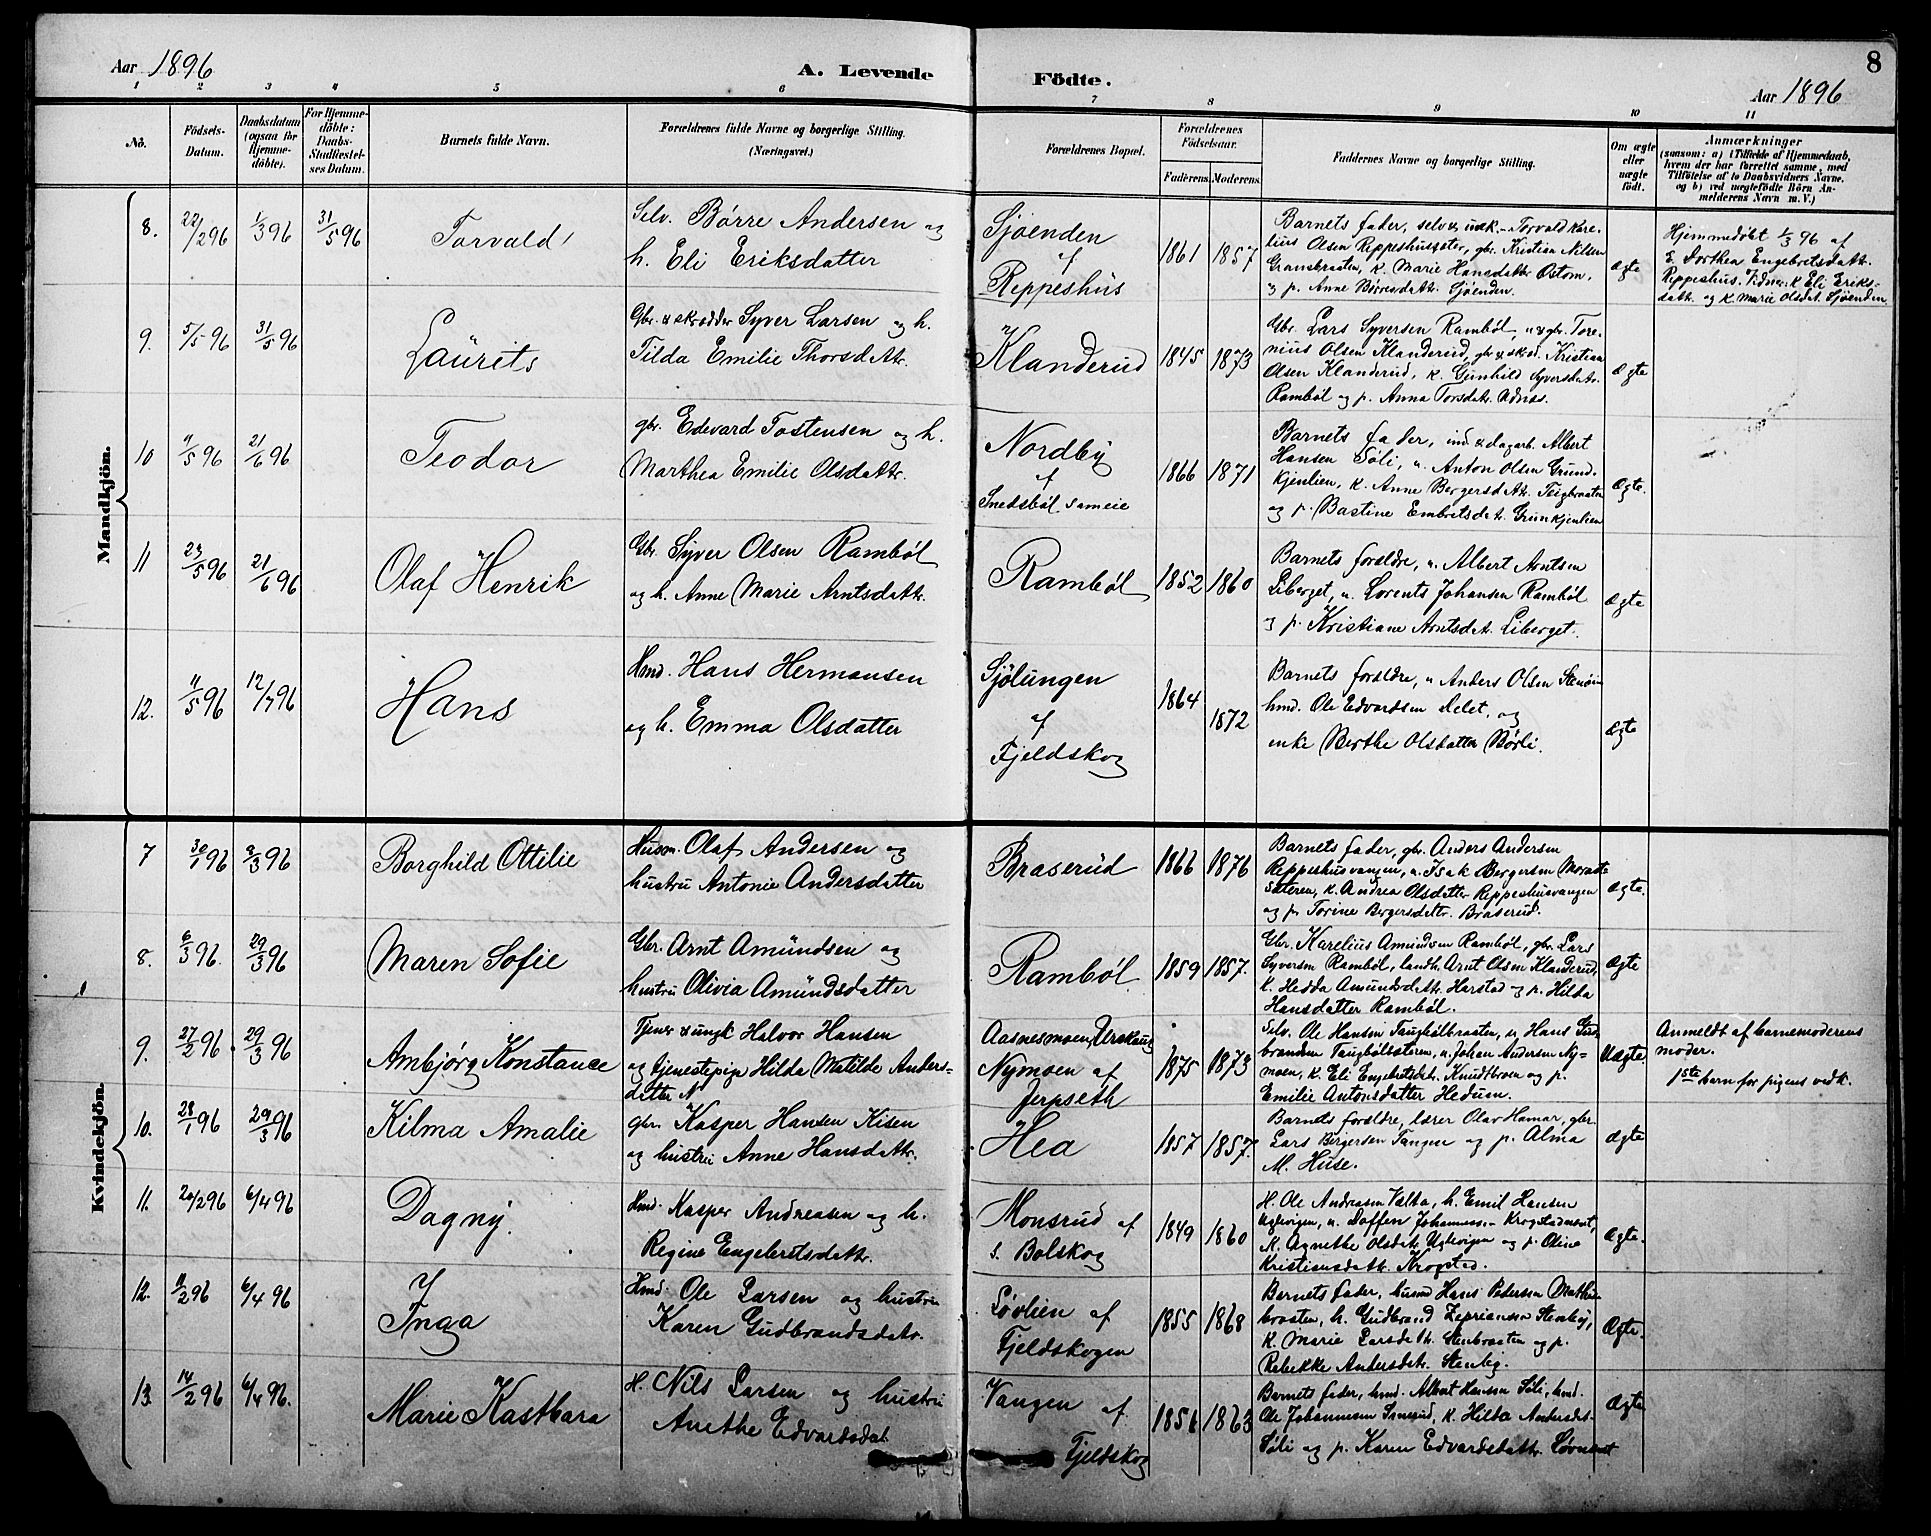 Aar 1896
A. Levende
Födte.
8
Aar 1896
1 2 3 4 5 6 7 8 9 10 11
No.
Födsels-
Datum.
Daabsdatum
(ogsaa for
Hjemme-
döbte).
For Hjemme-
döbte:
Daabs-
Stadfæstel-
ses Datum.
Barnets fulde Navn.
Forældrenes fulde Navne og borgerlige Stilling.
(Næringsvei.)
Forældrenes Bopæl.
Forældrenes
Födselsaar.
Faderens. Moderens.
Faddernes Navne og borgerlige Stilling.
Om ægte
eller
uægte
födt.
Anmærkninger
(saasom: a) i Tilfælde af Hjemmedaab,
hvem der har forrettet samme, med
Tilföielse af to Daabsvidners Navne,
og b) ved uægtefödte Börn An-
melderens Navn m. V.)
Mandkjön.
8.
22/2 96
1/3 96
31/5 96
Torvald
Selv. Börre Andersen og
h. Eli Eriksdatter
Sjöenden
af
Reppeshus
1861
1857
Barnets fader, selv., Torvald Kare-
lius Olsen Reppeshussæter, gbr. Kristian Nilsen
Gransbraaten, k. Marie Hansdattr. Ostom,
og p. Anne Börresdatr. Sjöenden.
Ægte
Hjemmedöbt 1/3 96 af
E. Dorthea Engebretsdattr.
Reppeshus. Vidner: k Eli Eriks-
datt. og k. Marie Olsdat. Sjöenden
9.
5/5 96
31/5 96
Laurits
Gbr. & skrædder Syver Larsen og h.
Tilda Emilie Thorsdattr.
Klanderud
1845
1873
Gbr. Lars Syversen Ramböl, u & gbr. Tore-
nius Olsen Klanderud, gbr & skræd. Kristian
Olsen Klanderud, k. Gunhild Syversdatr.
Ramböl og p. Anna Torsdatr. Udnæs.
Ægte
10
11/5 96
21/6 96
Teodor
gbr. Edevard Tostensen og h.
Marthea Emilie Olsdattr.
Nordby
af
Snedsböl sameie
1866
1871
Barnets fader, ind & dagarb. Albert
Hansen Söli, u. Anton Olsen Grund-
kjenlien, k. Anne Bergersdattr. Teigbraaten
og p. Bastine Embretsdat. Grunkjenlien
Ægte.
11
23/5 96
21/6 96
Olaf Henrik
Gbr. Syver Olsen Ramböl
og h. Anne Marie Arntsdattr.
Ramböl
1852
1860
Barnets forældre, u. Albert Arntsen
Liberget, u. Lorents Johansen Ramböl
og p. Kristiane Arntsdat. Liberget.
Ægte
12.
11/5 96
12/7 96
Hans
Hmd. Hans Hermansen
og h. Emma Olsdatter
Sjölungen
af
Fjeldskog
1864
1872
Barnets forældre, u Anders Olsen
hmd. Ole Edvardsen Delet, og
enke Berthe Olsdatter Börli.
Ægte
Kvindekjön.
7
30/1 96
8/3 96
Borghild Otilie
Husm. Olaf Andersen og
hustru Antonie Andersdatter
Braserud
1866
1876
Barnets fader, gbr. Anders Andersen
Reppeshusvangen, u. Isak Bergersen Moraste
sæteren, k. Andrea Olsdatter Reppeshusvangen
og p. Torine Bergersdattr. Braserud.
Ægte.
8.
6/3 96.
29/3 96
Maren Sofie
Gbr. Arnt Amundsen og
hustru Olivia Amundsdatter
Ramböl
1859
1857.
Gbr. Karelius Amundsen Ramböl, gbr. Lars
Syversen Ramböl, landh. Arnt Olsen Klanderud,
k. Hedda Amundsdattr. Harstad og p. Hilda
Hansdatter Ramböl.
Ægte
9.
27/2 96.
29/3 96
Ambjörg Konstance
Tjener & ungk Halvor Hansen
og tjenestepige Hilda Matilde Anders-
datter
Aasnesmoen, Urskoug
Nymoen af
Jerpseth
1875
1873
Selv. Ole Hansen Taugbölbraaten, u Hans Gud-
brandsen Taugbölsæteren, u. Johan Andersen Ny-
moen, k. Eli Engebretsdat. Knudtbroen og p.
Emilie Antonsdatter Hedum.
Uægte.
Anmeldt af barnemoderens
moder.
1ste barn for pigens vedk.
10.
28/1 96
29/3 96
Kilma Amalie
gbr. Kasper Hansen Kisen
og hustru Anne Hansdattr.
Hea
1857
1857.
Barnets forældre, lærer Olav Hamar, gbr.
Lars Bergersen Tangen og p. Alma
M. Huse.
Ægte
11.
20/2 96
6/4 96
Dagny.
Hmd. Kasper Andreasen og h.
Regine Engebretsdattr.
Monsrud af
s. Bolskog
1849
1860
H. Ole Andreasen Valta, h. Emil Hansen
Uglevigen, u. Doffen Johanness.
K. Agnethe Olsdatr. Uglevigen og p. Oline
Kristiansdattr. Krogstad.
Ægte.
12.
11/2 96
6/4 96
Inga
Hmd. Ole Larsen og hustru
Karen Gudbrandsdatr.
Lövlien af
Fjeldskogen
1855
1868
Barnets fader, husmd Hans Pedersen
braaten, h. Gudbrand Stenby,
k. Marie Larsdattr. Stenbraaten og p.
Rebekke Andersdatr. Stenby.
Ægte.
13.
14/2 96
6/4 96.
Marie Kastbara
H. Nils Larsen og hustru
Anethe Edvardsdat.
Vangen af
Fjeldskog
1856
1863
Barnets fader, hmd. Albert Hansen Söli, hmd.
Ole Johannesen, k. Hilda Andersdt.
Söli og p. Karen Edvardsdattr.
Ægte